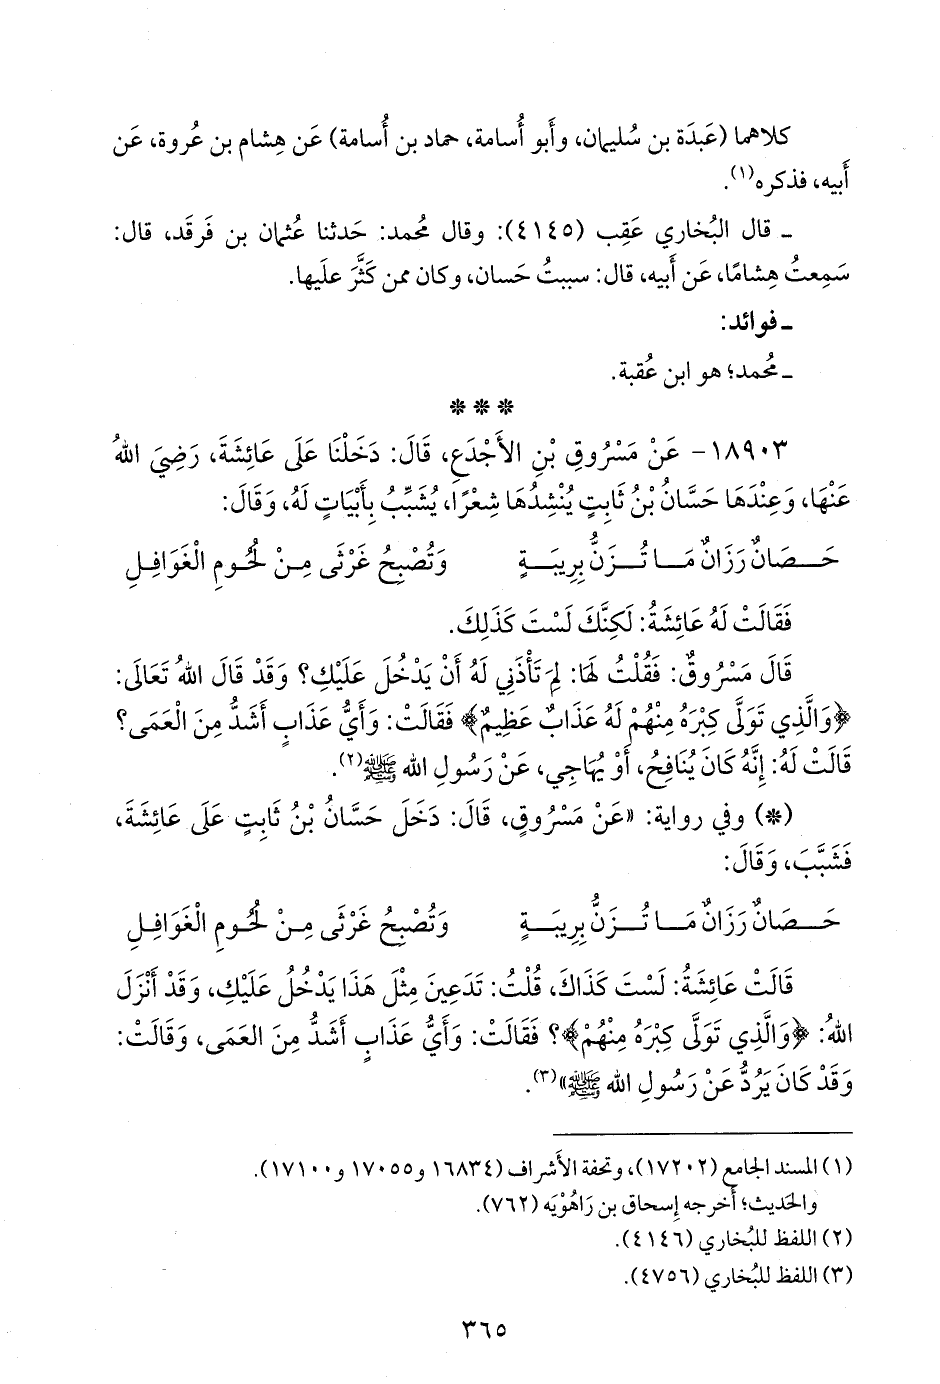 كلاهما (عَبدَة بن سُليمان، وأَبو أُسامة، حماد بن أُسامة) عَن هِشام بن عُروة، عَن
أَبيه، فذكره(١).
ـ قال البُخاري عَقِب (٤١٤٥): وقال مُحمد: حَدثنا عُثمان بن فَرقَد، قال:
سَمِعتُ هِشامًا، عَن أَبيه، قال: سببتُ حَسان، وكان ممن كَثَّرَ علَيها.
ـ فوائد:
ـ مُحمد؛ هو ابن عُقبة.
* * *
١٨٩٠٣- عَنْ مَسْرُوقِ بْنِ الأَجْدَعِ، قَالَ: دَخَلْنَا عَلَى عَائِشَةَ، رَضِيَ اللهُ
عَنْهَا، وَعِنْدَهَا حَسَّانُ بْنُ ثَابِتٍ يُنْشِدُهَا شِعْرًا، يُشَبِّبُ بِأَبْيَاتٍ لَهُ، وَقَالَ:
حَــصَانٌ رَزَانٌ مَــا تُــزَنُّ بِرِيبَــةٍ وَتُصْبِحُ غَرْثَى مِـنْ لُحُومِ الْغَوَافِـلِ
فَقَالَتْ لَهُ عَائِشَةُ: لَكِنَّكَ لَسْتَ كَذَلِكَ.
قَالَ مَسْرُوقٌ: فَقُلْتُ لَهَا: لِمَ تَأْذَنِي لَهُ أَنْ يَدْخُلَ عَلَيْكِ؟ وَقَدْ قَالَ اللهُ تَعَالَى:
﴿وَالَّذِي تَوَلَّى كِبْرَهُ مِنْهُمْ لَهُ عَذَابٌ عَظِيمٌ﴾ فَقَالَتْ: وَأَيُّ عَذَابٍ أَشَدُّ مِنَ الْعَمَى؟
قَالَتْ لَهُ: إِنَّهُ كَانَ يُنَافِحُ، أَوْ يُهَاجِي، عَنْ رَسُولِ الله ﷺ(٢).
(*) وفي رواية: «عَنْ مَسْرُوقٍ، قَالَ: دَخَلَ حَسَّانُ بْنُ ثَابِتٍ عَلَى عَائِشَةَ،
فَشَبَّبَ، وَقَالَ:
حَــصَانٌ رَزَانٌ مَــا تُــزَنُّ بِرِيبَــةٍ وَتُصْبِحُ غَرْثَى مِـنْ لُحُومِ الْغَوَافِـلِ
قَالَتْ عَائِشَةُ: لَسْتَ كَذَاكَ، قُلْتُ: تَدَعِينَ مِثْلَ هَذَا يَدْخُلُ عَلَيْكِ، وَقَدْ أَنْزَلَ
اللهُ: ﴿وَالَّذِي تَوَلَّى كِبْرَهُ مِنْهُمْ﴾؟ فَقَالَتْ: وَأَيُّ عَذَابٍ أَشَدُّ مِنَ العَمَى، وَقَالَتْ:
وَقَدْ كَانَ يَرُدُّ عَنْ رَسُولِ الله ﷺ»(٣).
(١) المسند الجامع (١٧٢٠٢)، وتحفة الأَشراف (١٦٨٣٤ و١٧٠٥٥ و١٧١٠٠).
والحَديث؛ أَخرجه إِسحاق بن رَاهُوْيَه (٧٦٢).
(٢) اللفظ للبُخاري (٤١٤٦).
(٣) اللفظ للبُخاري (٤٧٥٦).
٣٦٥